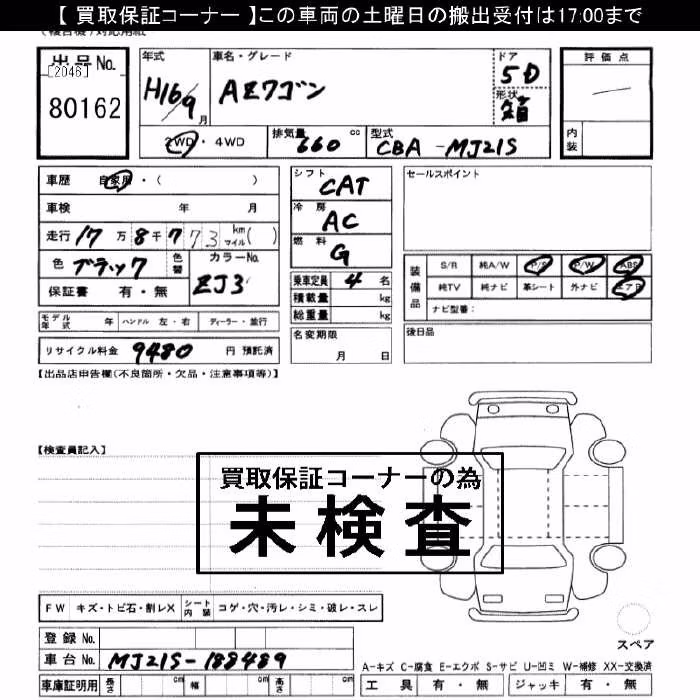 【 買取保証コーナー 】この車両の土曜日の搬出受付は17:00まで
出品No.
[2046]
80162
年式
H16/9月
車名・グレード
AZワゴン
ドア
5D
形状
箱
評価点
内装
2WD・4WD
排気量 660 cc
型式 CBA-MJ21S
車歴 自家用・( )
車検 年 月
走行 17万8千773 km マイル( )
色 ブラック 色替
カラーNo. ZJ3
保証書 有・無
シフト
CAT
冷房
AC
燃料
G
乗車定員 4 名
積載量 kg
総重量 kg
セールスポイント
装備品
S/R 純A/W P/S P/W ABS
純TV 純ナビ 革シート 外ナビ エアB
ナビ型番:
モデル年式 年 ハンドル 左・右 ディーラー・並行
名変期限
月 日
後日品
リサイクル料金 9480 円 預託済
【出品店申告欄(不良箇所・欠品・注意事項等)】
【検査員記入】
買取保証コーナーの為
未検査
FW キズ・トビ石・割レX シート内装 コゲ・穴・汚レ・シミ・破レ・スレ
スペア
登録 No.
車台 No. MJ21S-188489
A-キズ C-腐食 E-エクボ S-サビ U-凹ミ W-補修 XX-交換済
車庫証明用 長さ cm 幅 cm 高さ cm
工具 有・無 ジャッキ 有・無